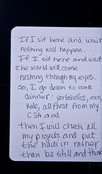 If I sit here and wait
nothing will happen.
If I sit here and wait
the world will come
nothing through my eyes.
So, I go down to cook
dinner:
kale, all fresh from my
CSA and
then I will check all
my projects and put
the in rather
than be still and think